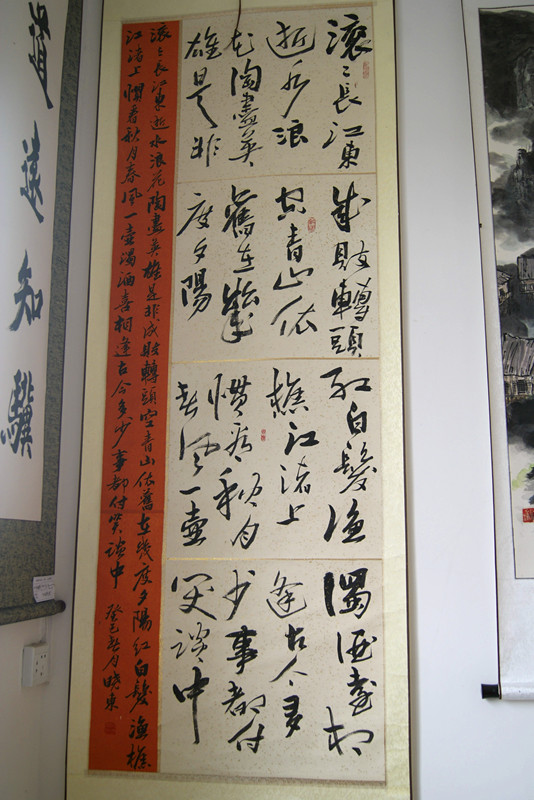 滚〻長江東
逝水浪
花陶盡英
雄是非
成敗轉頭
空青山依
舊在幾
度夕陽
紅白髮漁
樵江渚上
慣看秋月
春风一壺
濁酒喜相
逢古今多
少事都付
笑談中
滚〻長江東逝水浪花陶盡英雄是非成敗轉頭空青山依舊在幾度夕陽紅白髮漁樵
江渚上慣看秋月春風一壺濁酒喜相逢古今多少事都付笑談中
癸巳秋月曉東
道遠知驥